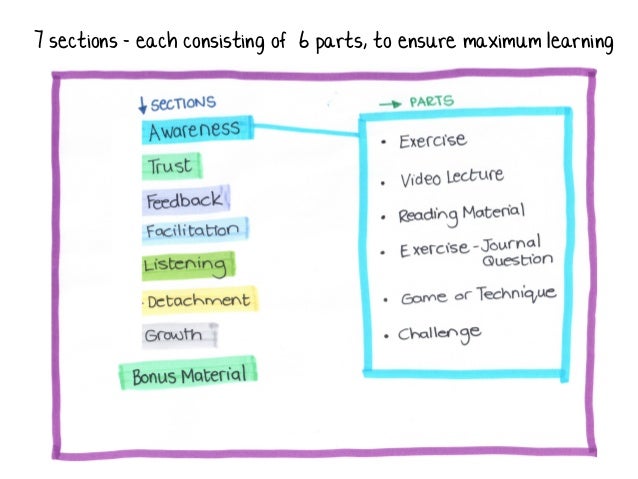 7 sections - each consisting of 6 parts, to ensure maximum learning
↓ SECTIONS
Awareness
Trust
Feedback
Facilitation
Listening
Detachment
Growth
Bonus Material
→ PARTS
• Exercise
• Video Lecture
• Reading Material
• Exercise - Journal
Question
• Game or Technique
• Challenge